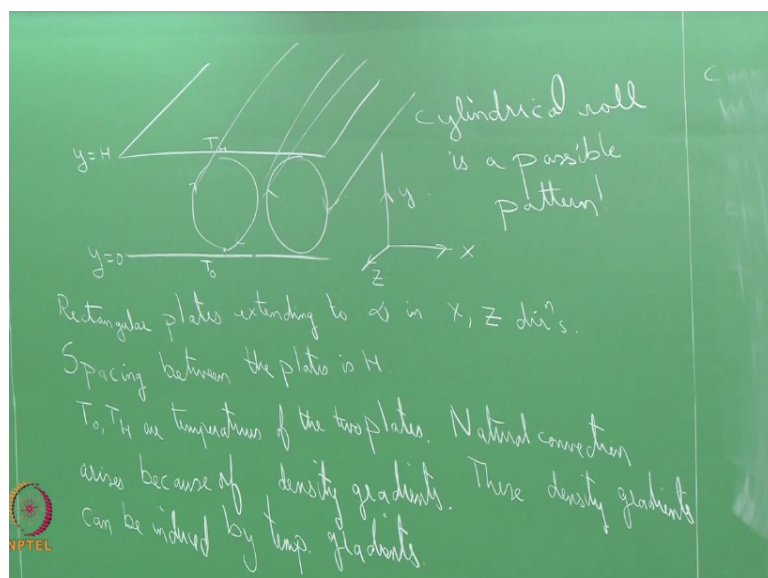 cylindrical roll
is a possible
pattern!
y=H
T_H
y
X
Z
y=0
T_0
Rectangular plates extending to ∞ in X, Z dirⁿs.
Spacing between the plates is H.
T_0, T_H are temperatures of the two plates. Natural convection
arises because of density gradients. These density gradients
can be induced by temp. gradients.
NPTEL